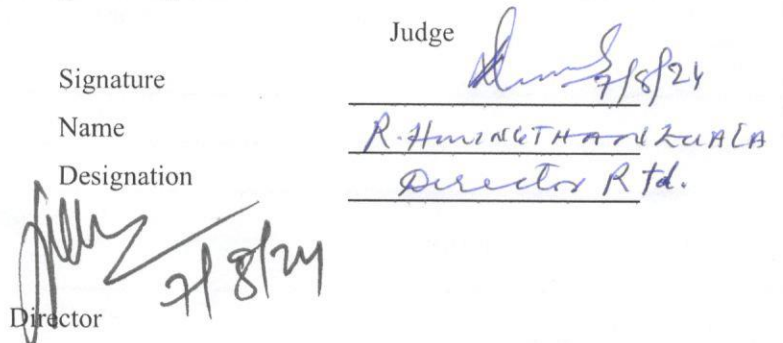 Judge
Signature 7/8/24
Name R. HMINGTHANZUALA
Designation Director Rtd.
7/8/24
Director